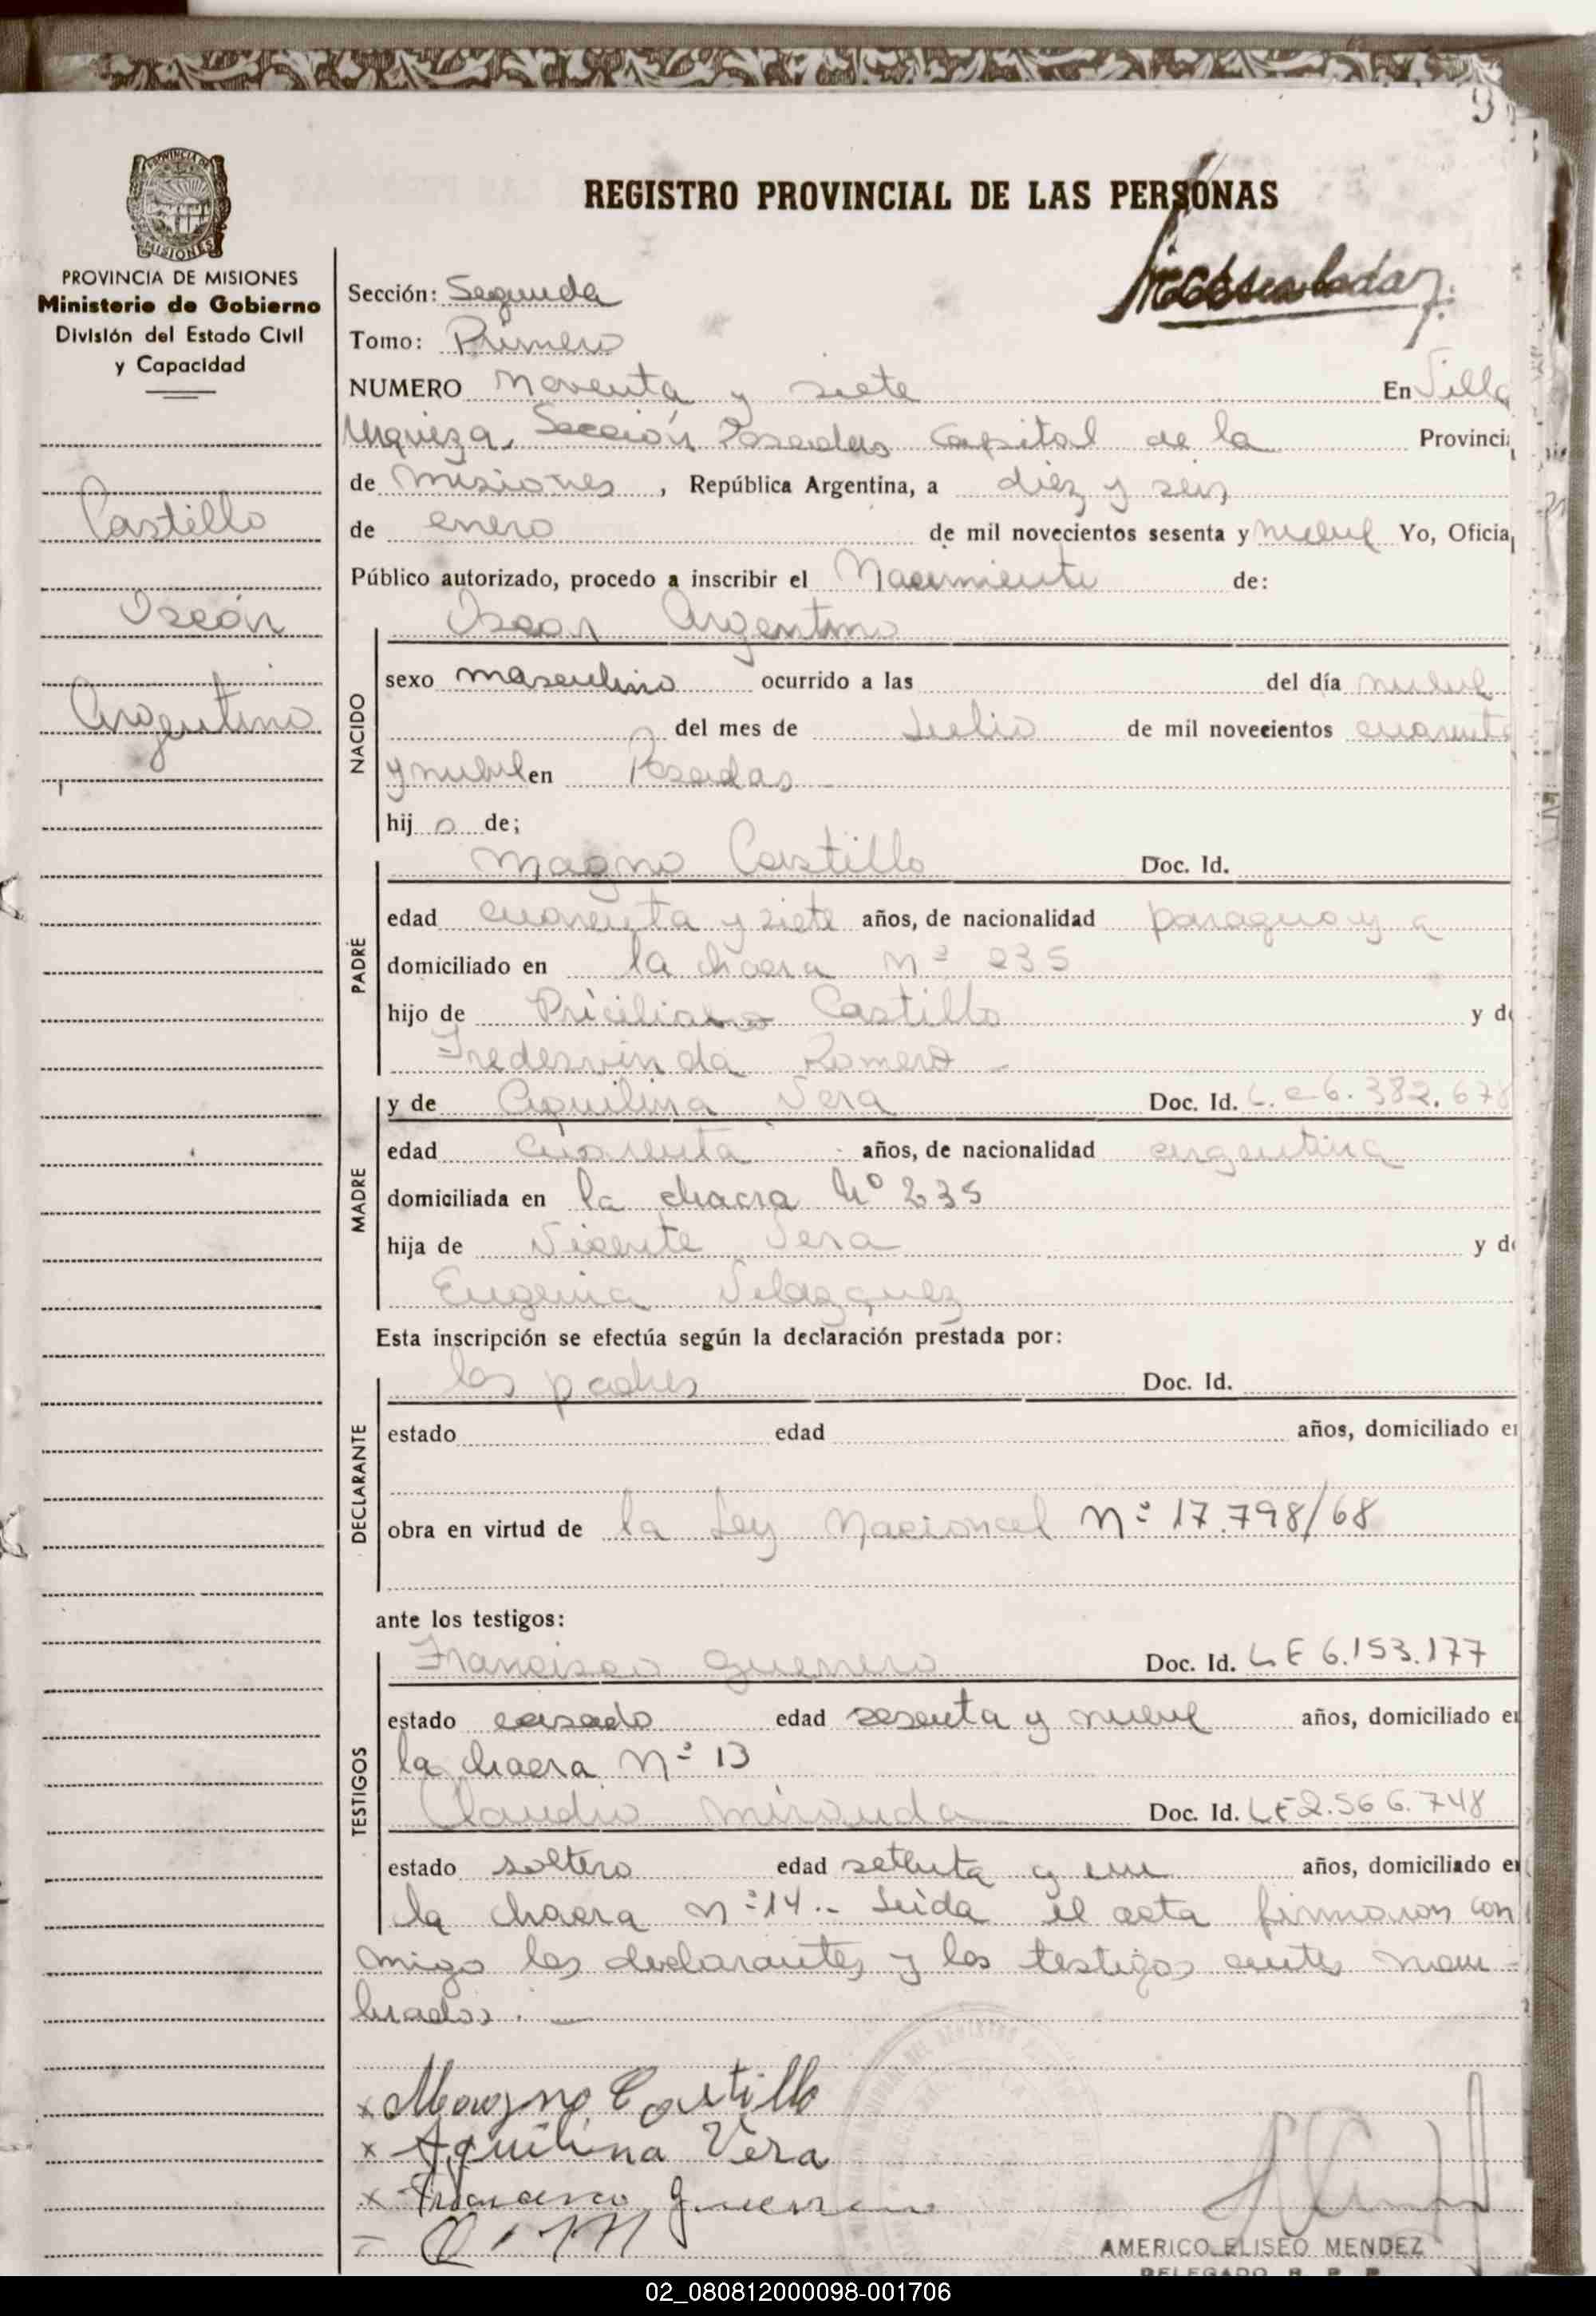 REGISTRO PROVINCIAL DE LAS PERSONAS
PROVINCIA DE MISIONES
MISIONES
PROVINCIA DE MISIONES
Ministerio de Gobierno
División del Estado Civil
y Capacidad
Castillo
Oscar
Argentino
Sección: Segunda
Tomo: Primero
NUMERO noventa y siete En Villa
Urquiza, Sección Posadas Capital de la Provinci
de Misiones, República Argentina, a diez y seis
de enero de mil novecientos sesenta y nueve Yo, Oficia
Público autorizado, procedo a inscribir el Nacimiento de:
NACIDO
Oscar Argentino
sexo masculino ocurrido a las del día nueve
del mes de Julio de mil novecientos cuarenta
y nueve en Posadas
hijo de;
PADRE
Magno Castillo Doc. Id.
edad cuarenta y siete años, de nacionalidad paraguaya
domiciliado en la chacra Nº 235
hijo de Priciliano Castillo y de
Fredesvinda Romero
MADRE
y de Aquilina Vera Doc. Id. L.C 6.382.678
edad cuarenta años, de nacionalidad argentina
domiciliada en la chacra Nº 235
hija de Vicente Vera y de
Eugenia Velazquez
Esta inscripción se efectúa según la declaración prestada por:
DECLARANTE
los padres Doc. Id.
estado edad años, domiciliado en
obra en virtud de la Ley Nacional Nº 17.798/68
ante los testigos:
TESTIGOS
Francisco Guerrero Doc. Id. L E 6.153.177
estado casado edad sesenta y nueve años, domiciliado en
la chacra Nº 13
Claudio Miranda Doc. Id. LE 2.566.748
estado soltero edad setenta y un años, domiciliado en
la chacra Nº 14.- Leida el acta firmaron con
migo los declarantes y los testigos ante nom-
brados.
x Magno Castillo
x Aquilina Vera
x Francisco Guerrero
AMERICO ELISEO MENDEZ
DELEGADO R. P. P.
02_080812000098-001706